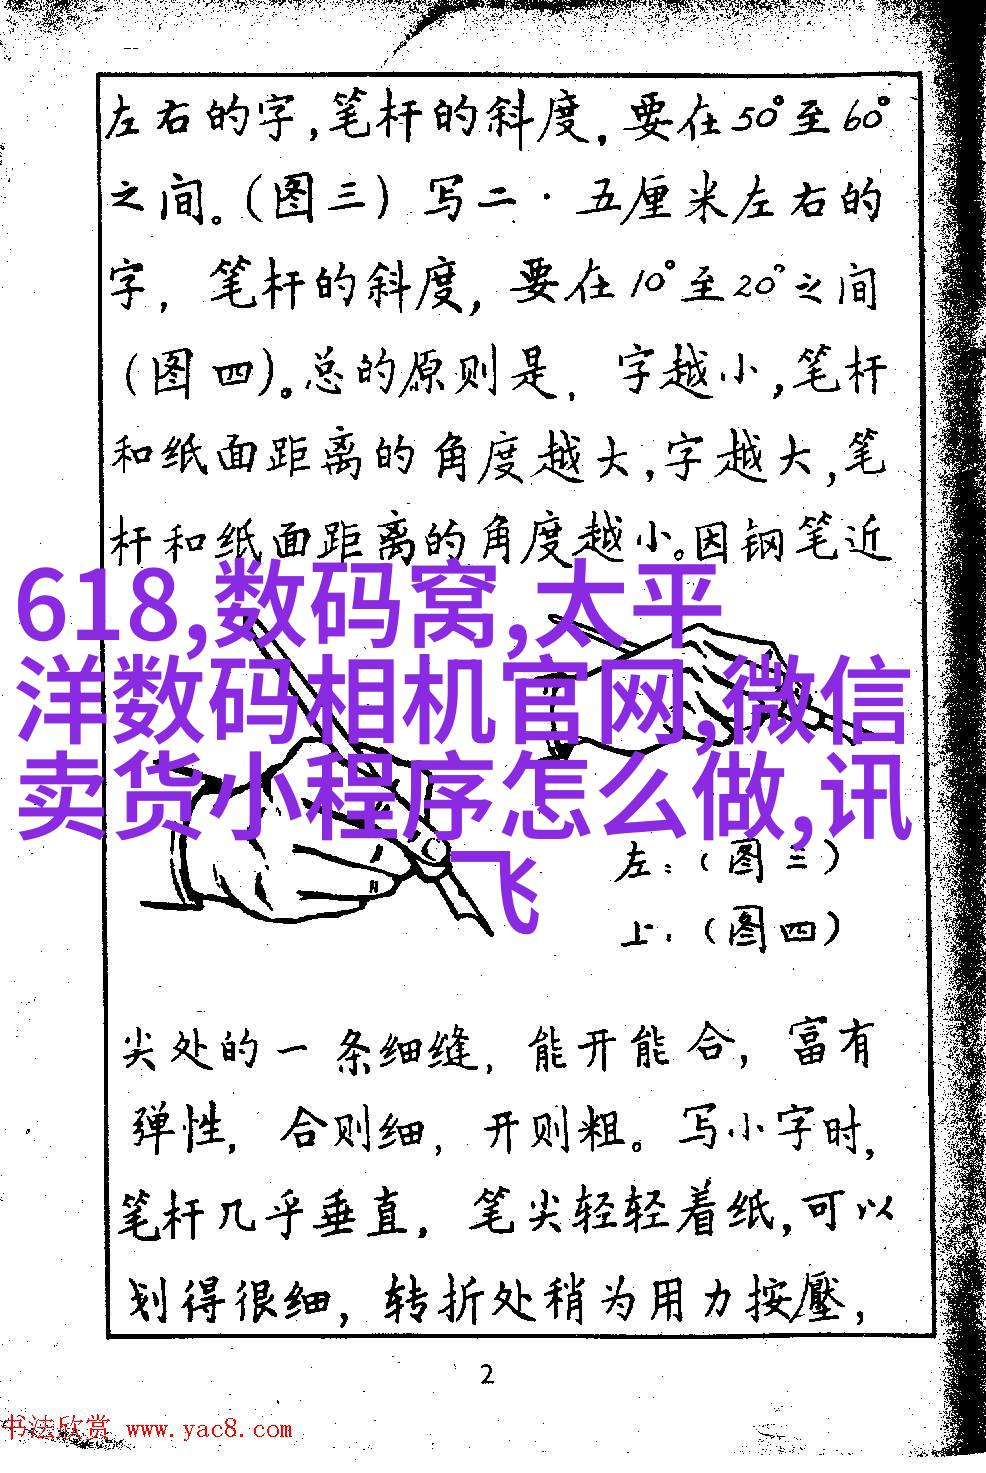 左右的字,笔杆的斜度,要在50°至60°
之间。(图三)写二·五厘米左右的
字,笔杆的斜度,要在10°至20°之间
(图四)。总的原则是,字越小,笔杆
和纸面距离的角度越大,字越大,笔
杆和纸面距离的角度越小。因钢笔近
618,数码窝,太平
洋数码相机官网,微信
卖货小程序怎么做,讯
飞
左:(图三)
上:(图四)
尖处的一条细缝,能开能合,富有
弹性,合则细,开则粗。写小字时,
笔杆几乎垂直,笔尖轻轻着纸,可以
划得很细,转折处稍为用力按壓,
2
书法欣赏 www.yac8.com